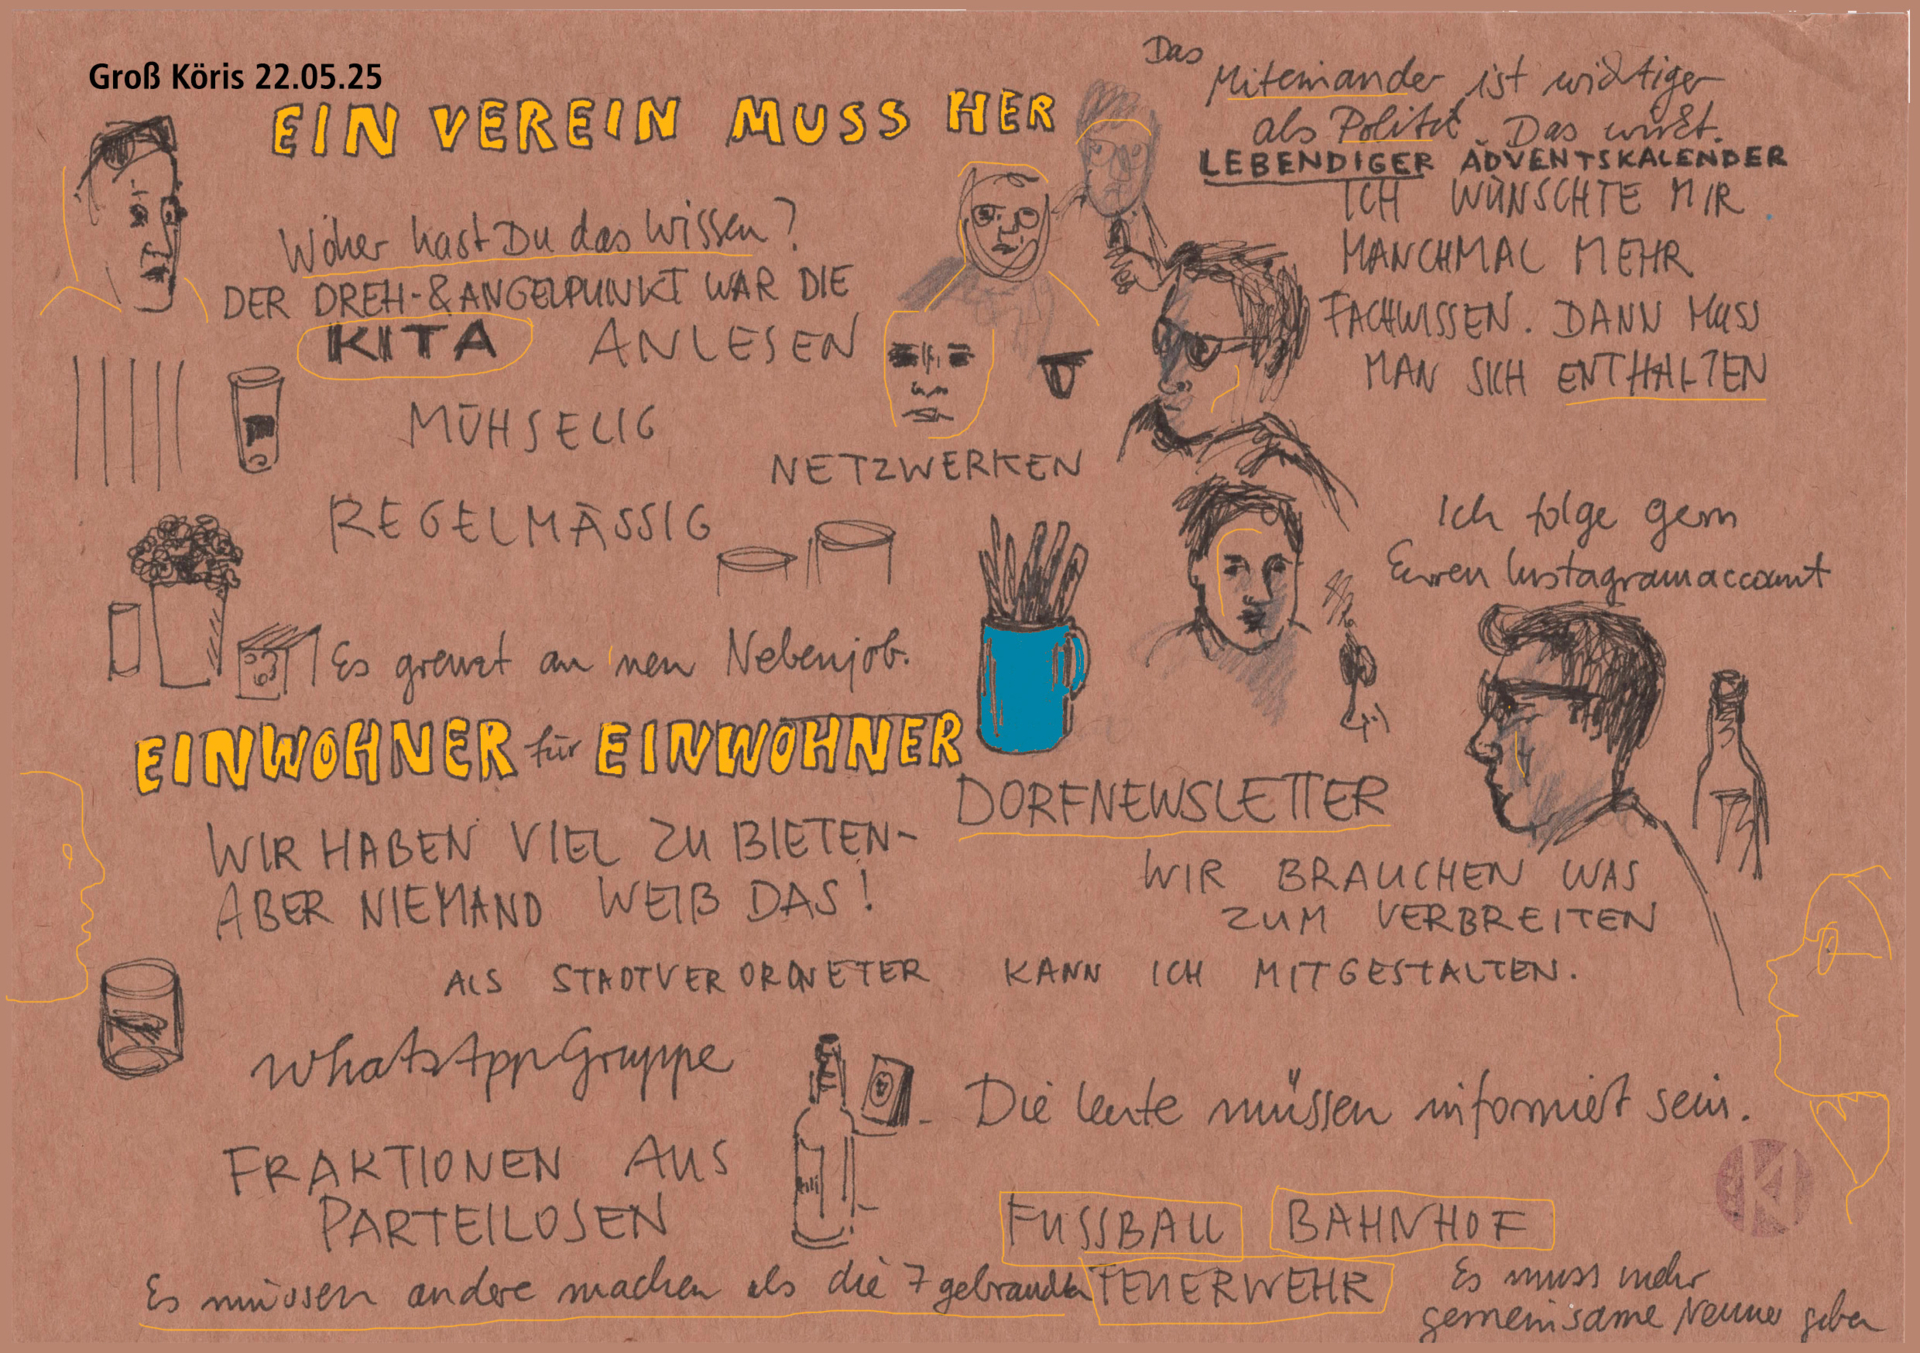 Groß Köris 22.05.25
EIN VEREIN MUSS HER
Das
Miteinander ist wichtiger
als Politik. Das wirkt.
LEBENDIGER ADVENTSKALENDER
ICH WÜNSCHTE MIR
MANCHMAL MEHR
FACHWISSEN. DANN MUSS
MAN SICH ENTHALTEN
Woher hast Du das Wissen?
DER DREH-&ANGELPUNKT WAR DIE
KITA
ANLESEN
MÜHSELIG
NETZWERKEN
REGELMÄSSIG
Ich folge gern
Euren Instagramaccount
Es grenzt an 'nen Nebenjob.
EINWOHNER für EINWOHNER
DORFNEWSLETTER
WIR HABEN VIEL ZU BIETEN-
ABER NIEMAND WEIß DAS!
WIR BRAUCHEN WAS
ZUM VERBREITEN
ALS STADTVERORDNETER KANN ICH MITGESTALTEN.
WhatsAppGruppe
Die Leute müssen informiert sein.
FRAKTIONEN AUS
PARTEILOSEN
FUSSBALL
BAHNHOF
FEUERWEHR
Es müssen andere machen als die 7 gebrauchten
Es muss mehr
gemeinsame Nenner geben
KI